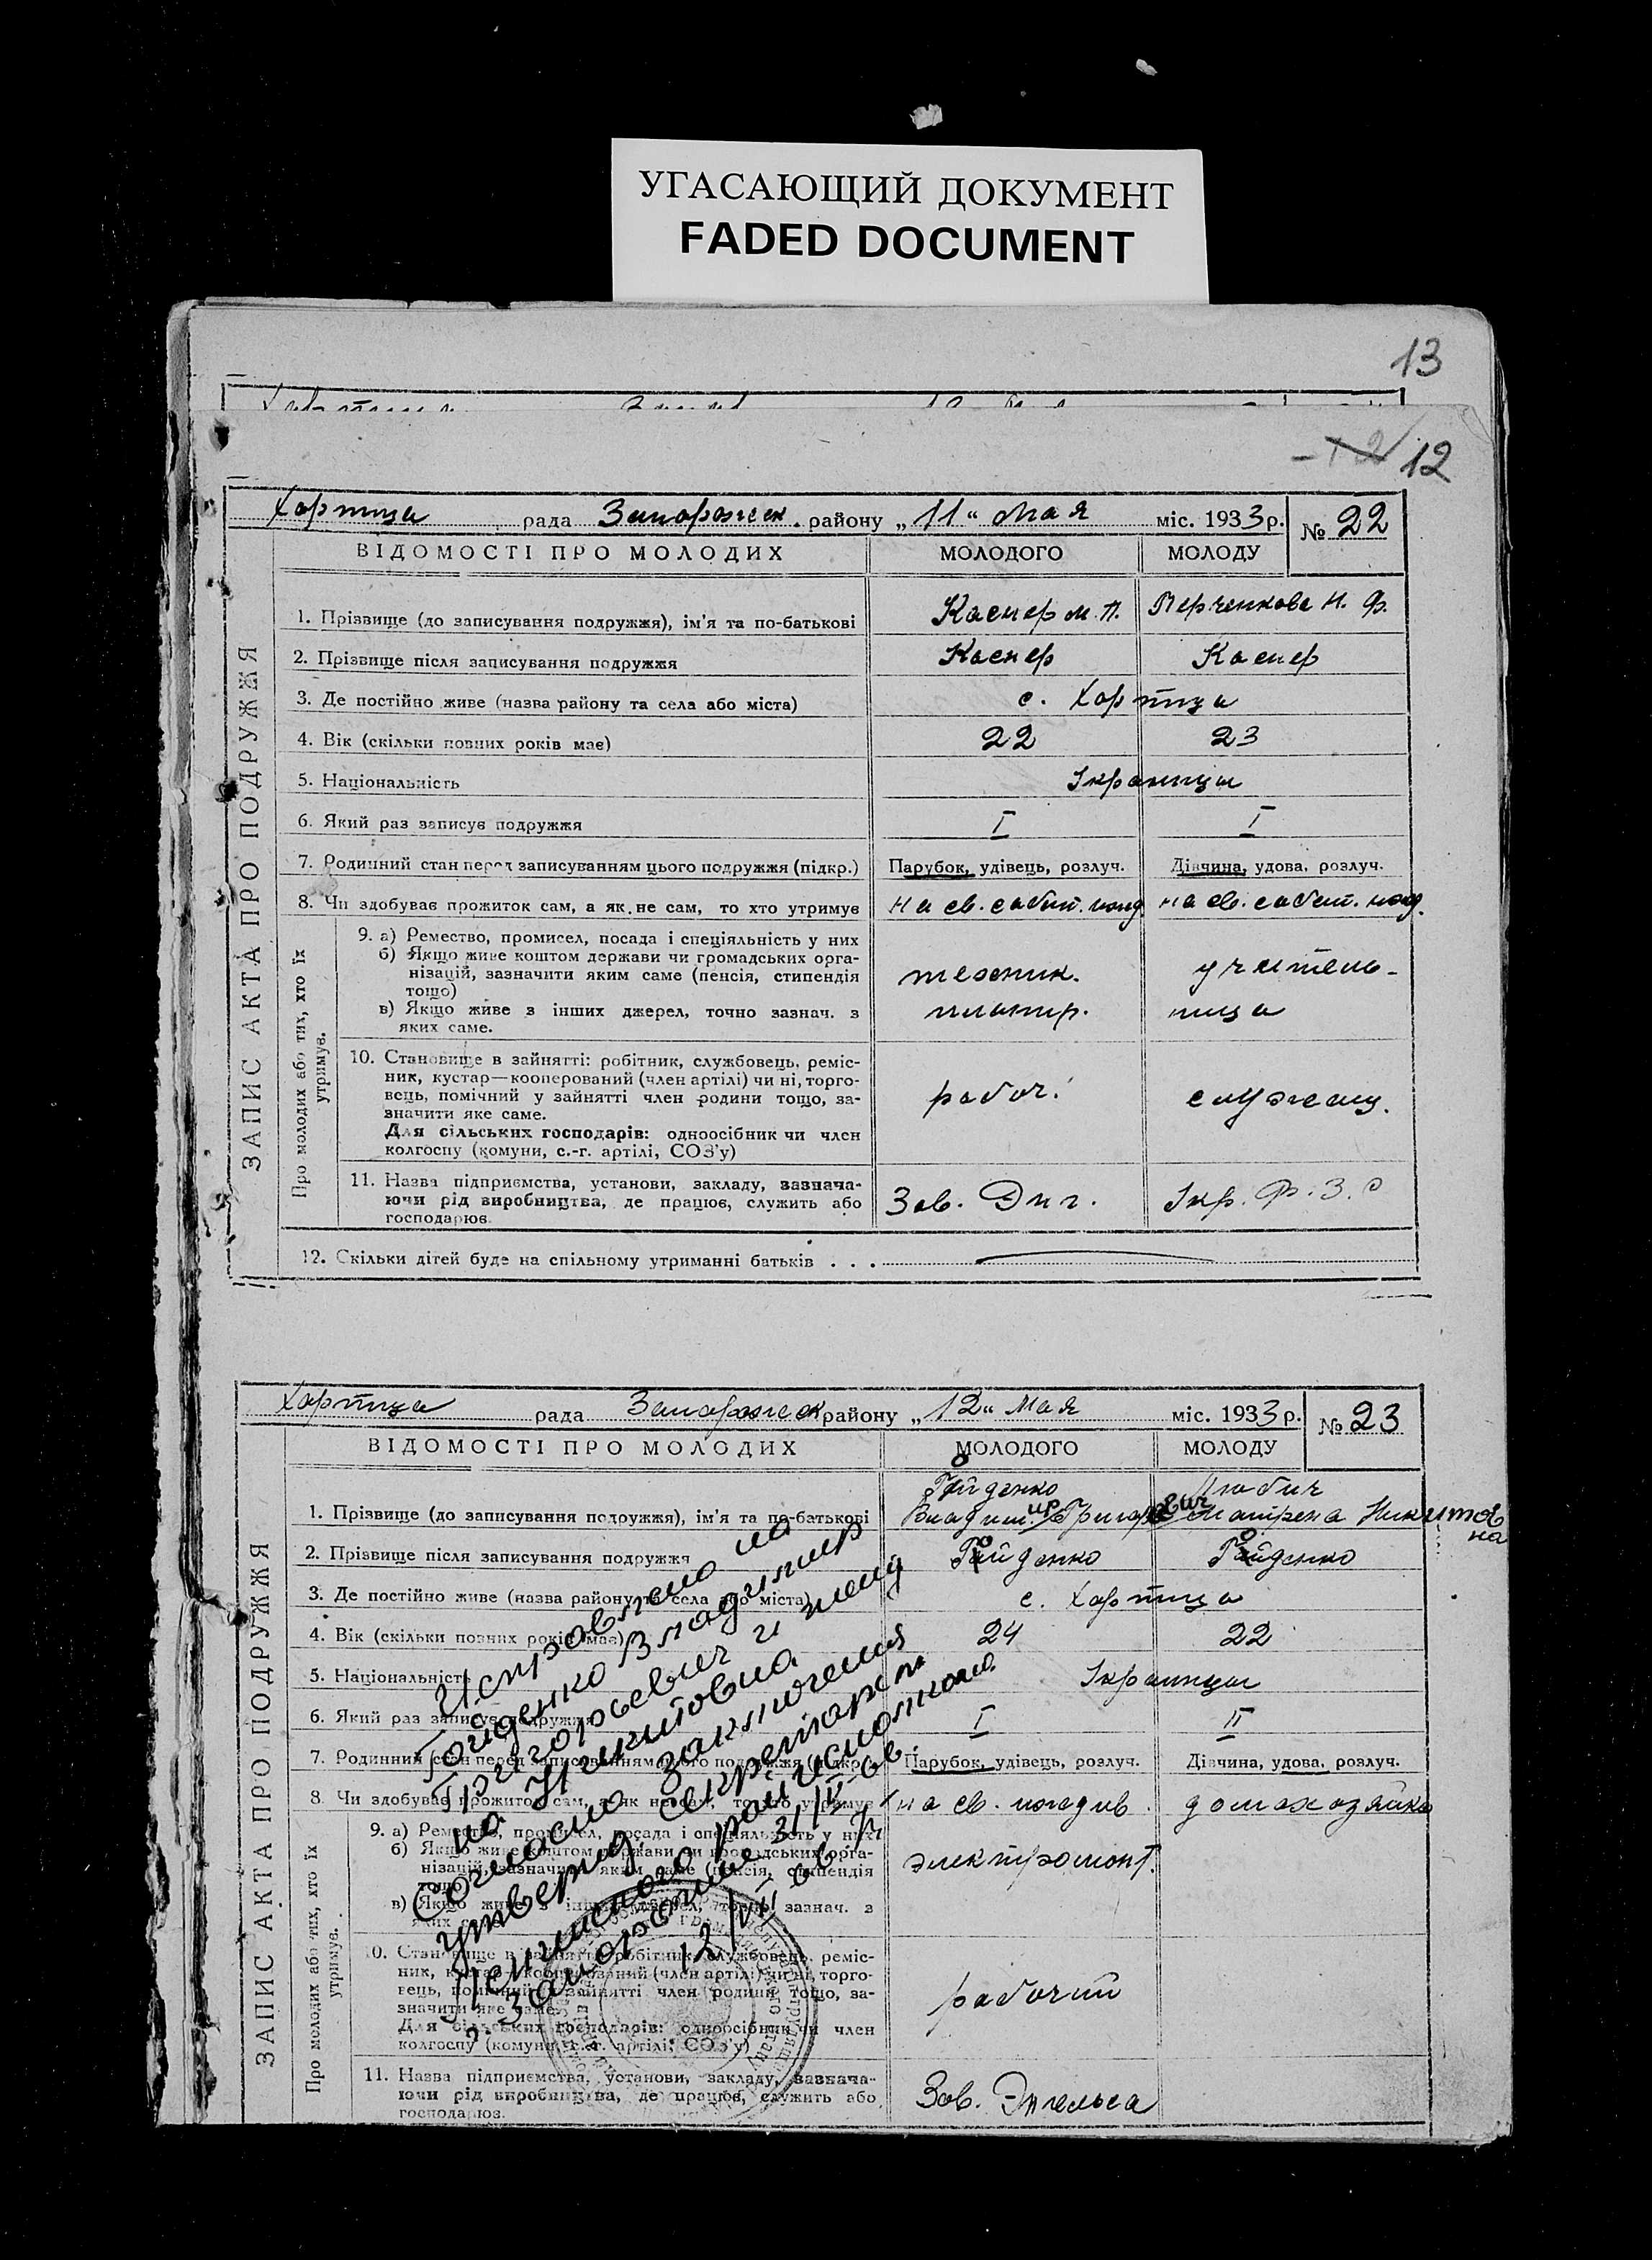 УГАСАЮЩИЙ ДОКУМЕНТ
FADED DOCUMENT
13
12
Хортица рада Запорожск. району „11“ Мая міс. 1933 р. № 22
ВІДОМОСТІ ПРО МОЛОДИХ МОЛОДОГО МОЛОДУ
ЗАПИС АКТА ПРО ПОДРУЖЖЯ
1. Прізвище (до записування подружжя), ім'я та по-батькові М. П. Н. Ф.
2. Прізвище після записування подружжя
3. Де постійно живе (назва району та села або міста) с. Хортица
4. Вік (скільки повних років має) 22 23
5. Національність
6. Який раз записує подружжя I I
7. Родинний стан перед записуванням цього подружжя (підкр.) Парубок, удівець, розлуч. Дівчина, удова, розлуч.
8. Чи здобуває прожиток сам, а як не сам, то хто утримує на св. на св.
Про молодих або тих, хто їх утримує.
9. а) Ремество, промисел, посада і спеціяльність у них
б) Якщо живе коштом держави чи громадських орга-
нізацій, зазначити яким саме (пенсія, стипендія техник. учитель-
тощо)
в) Якщо живе з інших джерел, точно зазнач. з ница
яких саме.
10. Становище в зайнятті: робітник, службовець, реміс-
ник, кустар—кооперований (член артілі) чи ні, торго-
вець, помічний у зайнятті член родини тощо, за- рабоч. служащ.
значити яке саме.
Для сільських господарів: одноосібник чи член
колгоспу (комуни, с.-г. артілі, СОЗ'у)
11. Назва підприємства, установи, закладу, зазнача-
ючи рід виробництва, де працює, служить або Зав.
господарює.
12. Скільки дітей буде на спільному утриманні батьків . . .
Хортица рада Запорожск району „12“ Мая міс. 1933 р. № 23
ВІДОМОСТІ ПРО МОЛОДИХ МОЛОДОГО МОЛОДУ
ЗАПИС АКТА ПРО ПОДРУЖЖЯ
Гойденко Любич
1. Прізвище (до записування подружжя), ім'я та по-батькові Владимир Григорьевич Матрена Никитовна
2. Прізвище після записування подружжя Гойденко Гойденко
3. Де постійно живе (назва району та села або міста) с. Хортица
4. Вік (скільки повних років має) 24 22
5. Національність
6. Який раз записує подружжя I II
7. Родинний стан перед записуванням цього подружжя (підкр.) Парубок, удівець, розлуч. Дівчина, удова, розлуч.
8. Чи здобуває прожиток сам, а як не сам, то хто утримує на св. домахозяйка
Про молодих або тих, хто їх утримує.
9. а) Ремество, промисел, посада і спеціяльність у них
б) Якщо живе коштом держави чи громадських орга-
нізацій, зазначити яким саме (пенсія, стипендія электромонт.
тощо)
в) Якщо живе з інших джерел, точно зазнач. з
яких саме.
10. Становище в зайнятті: робітник, службовець, реміс-
ник, кустар—кооперований (член артілі) чи ні, торго-
вець, помічний у зайнятті член родини тощо, за- рабочий
значити яке саме.
Для сільських господарів: одноосібник чи член
колгоспу (комуни, с.-г. артілі, СОЗ'у)
11. Назва підприємства, установи, закладу, зазнача-
ючи рід виробництва, де працює, служить або Зав. Энгельса
господарює.
Исправлено на
Гойденко Владимир
Григорьевич и жену
на Никитовна
Согласно заключения
утвержд. секретарем
Ленинского райисполкома
г. Запорожье